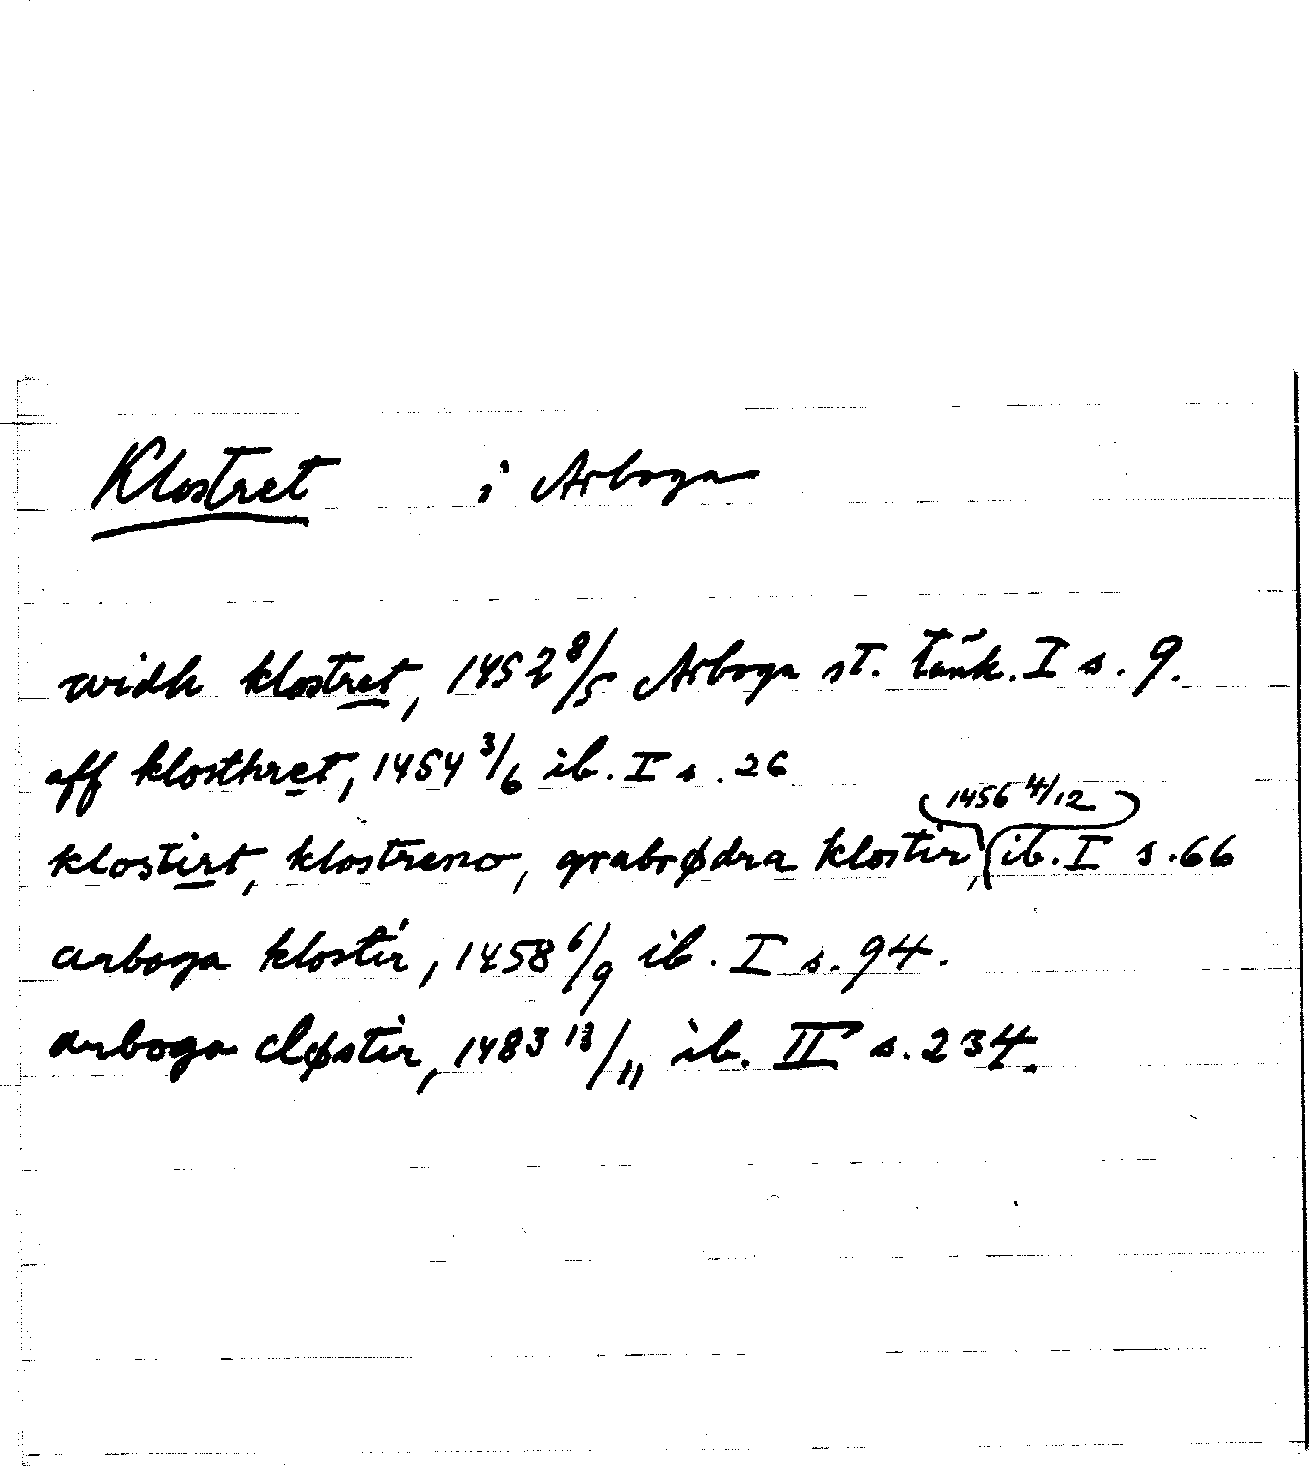 Klostret i Arboga
widh klostret, 1452 8/5 Arboga st. tänk. I s. 9.
aff klosthret, 1454 3/6 ib. I s. 26
1456 4/12
klostirt, klostreno, grabrødra klostir, ib. I s. 66
arboga klostir, 1458 6/9 ib. I s. 94.
arboga cløstir, 1483 13/11 ib. II s. 234.